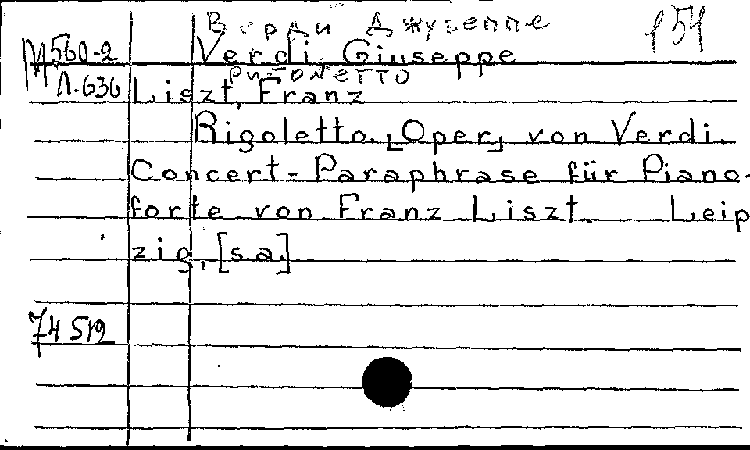 Верди Джузеппе
151
М 560-2 Verdi, Giuseppe
Риголетто
Л.636 Liszt, Franz
Rigoletto. [Oper] von Verdi.
Concert-Paraphrase für Piano-
forte von Franz Liszt. Leip
zig, [s.a.]
74519